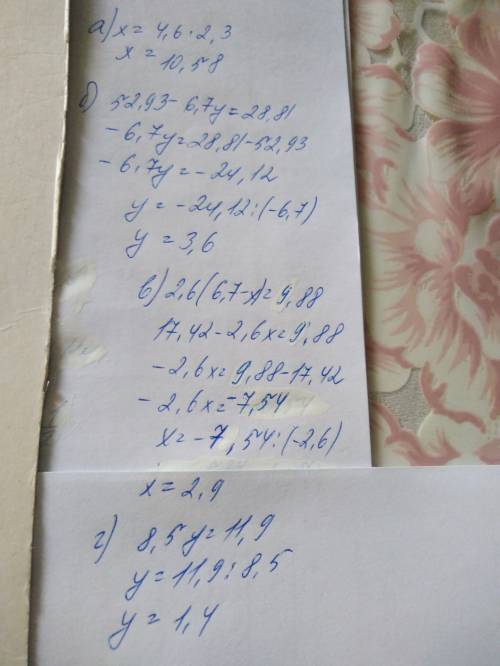 а) x = 4,6 · 2,3
x = 10,58
б) 52,93 - 6,7y = 28,81
- 6,7y = 28,81 - 52,93
- 6,7y = - 24,12
y = - 24,12 : (-6,7)
y = 3,6
в) 2,6(6,7-x) = 9,88
17,42 - 2,6x = 9,88
- 2,6x = 9,88 - 17,42
- 2,6x = -7,54
x = -7,54 : (-2,6)
x = 2,9
г) 8,5y = 11,9
y = 11,9 : 8,5
y = 1,4